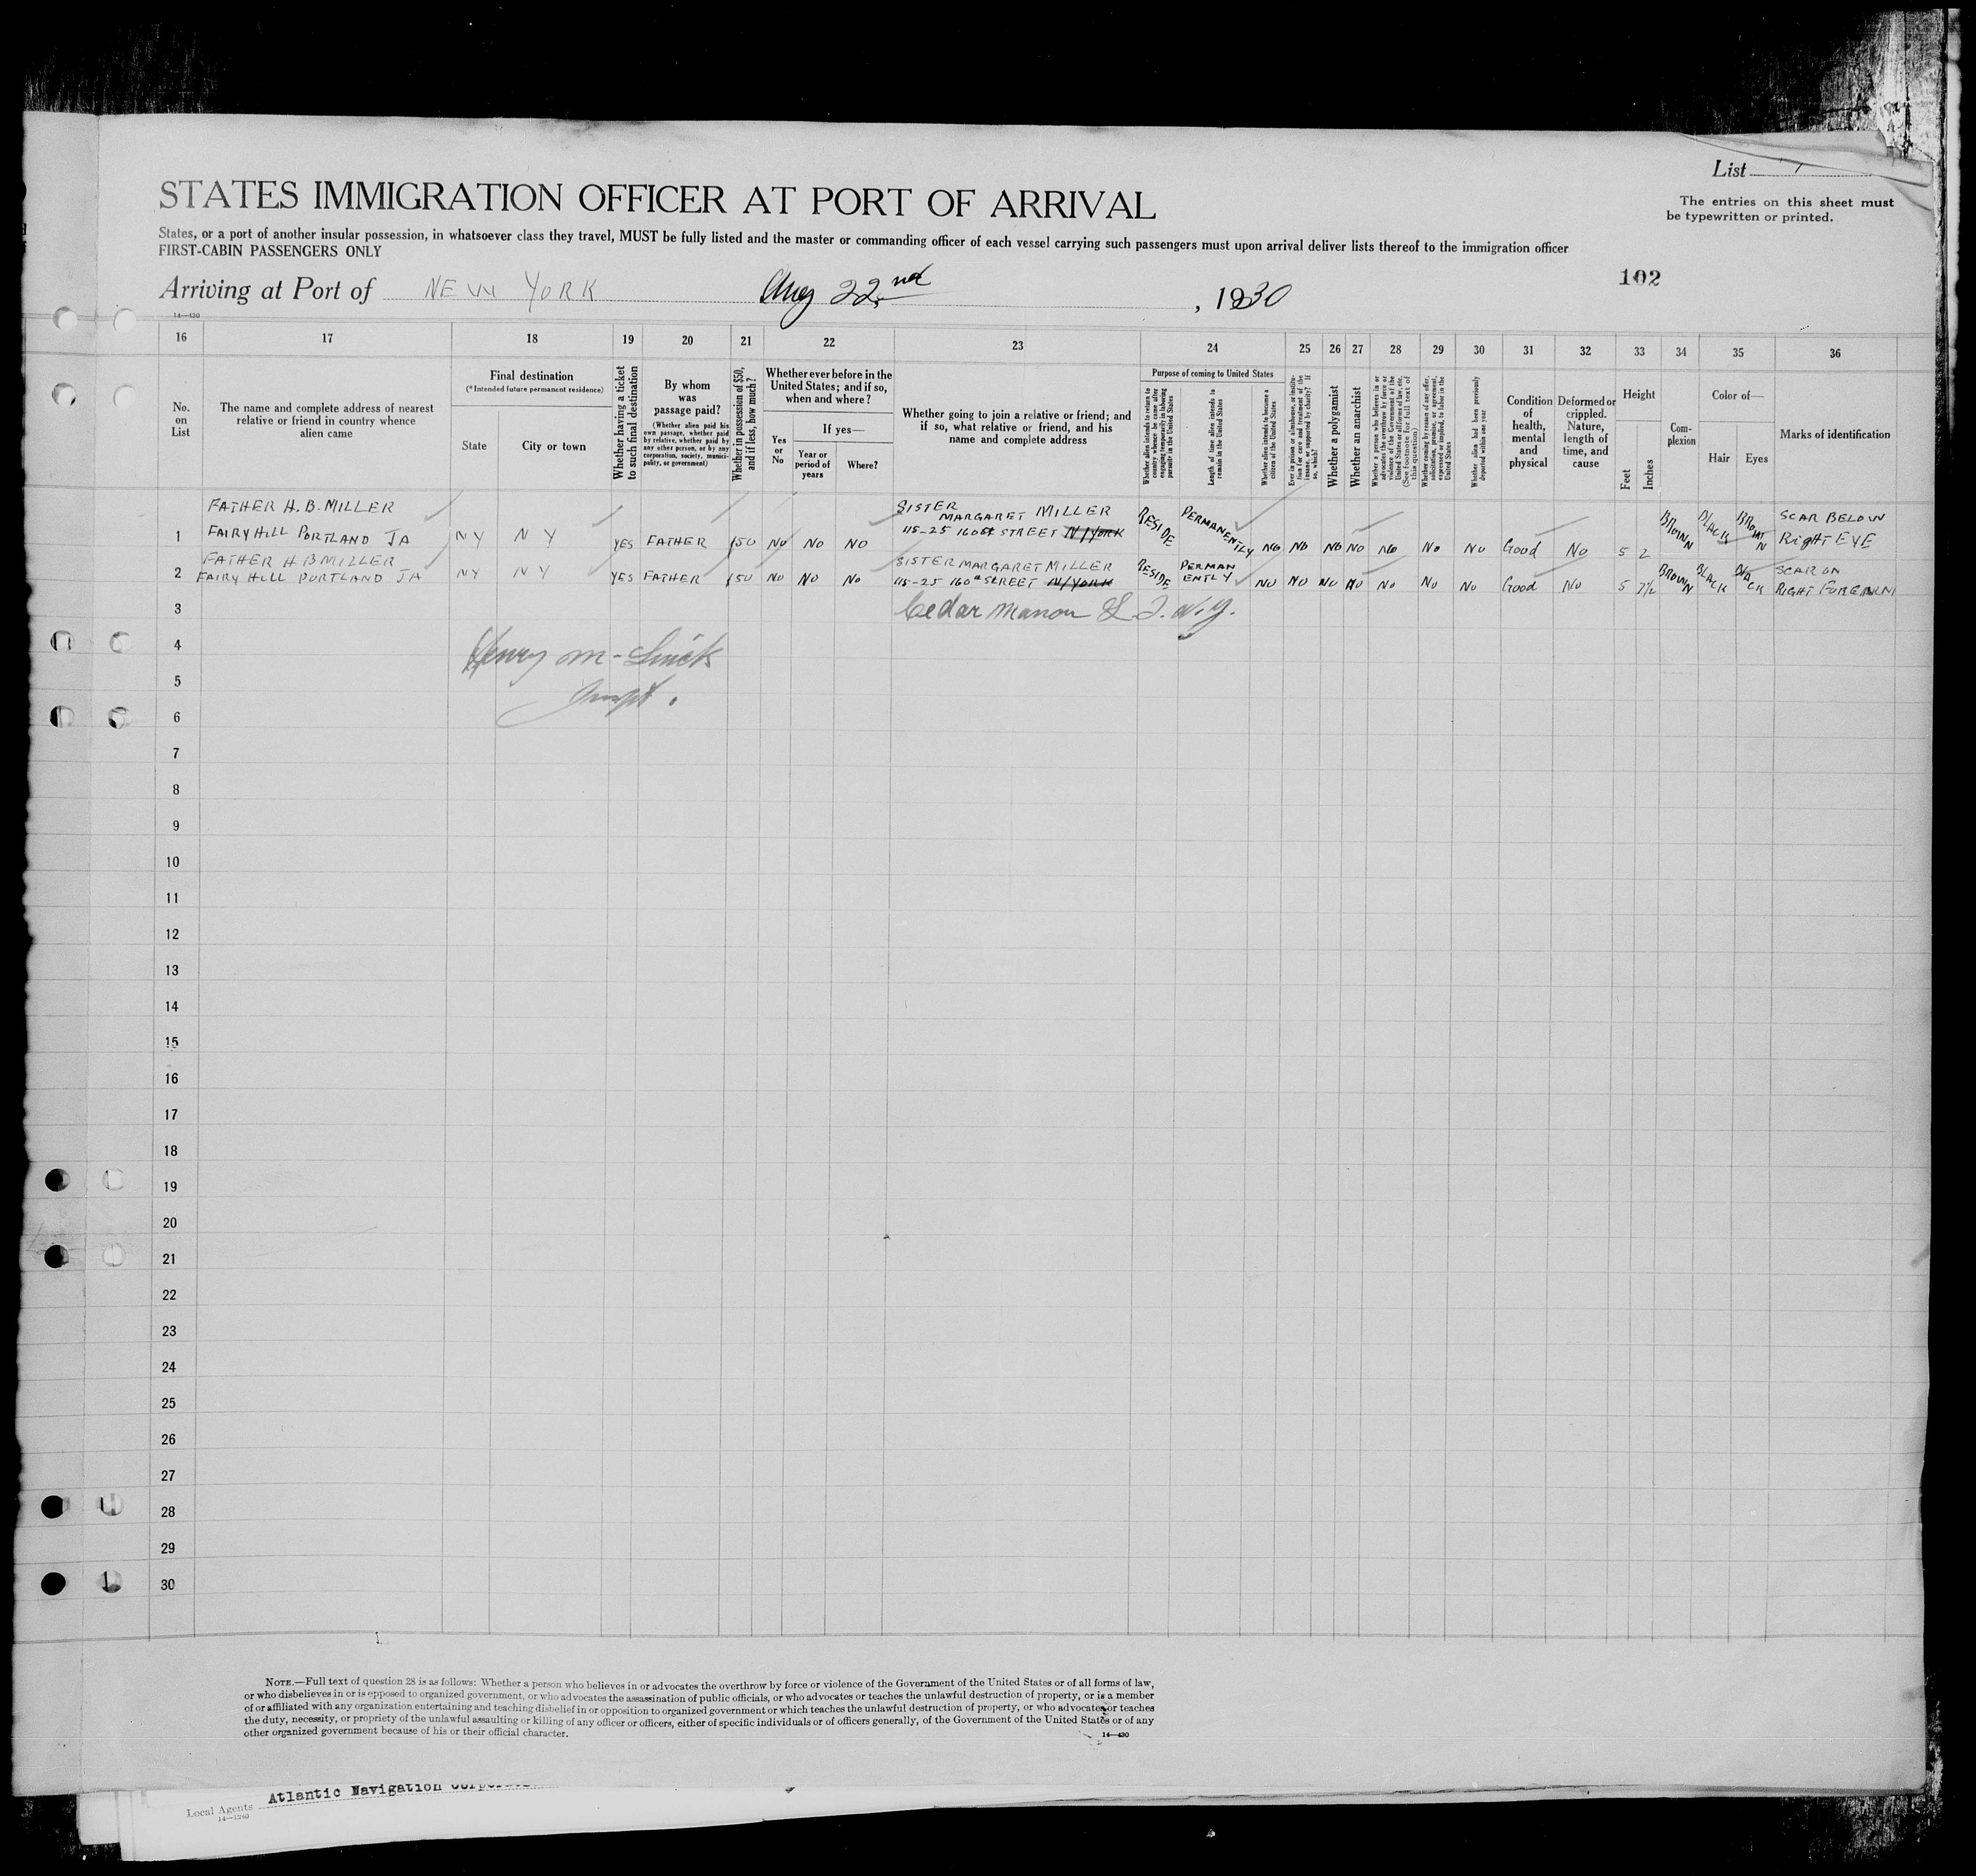 List 1
The entries on this sheet must
be typewritten or printed.
STATES IMMIGRATION OFFICER AT PORT OF ARRIVAL
States, or a port of another insular possession, in whatsoever class they travel, MUST be fully listed and the master or commanding officer of each vessel carrying such passengers must upon arrival deliver lists thereof to the immigration officer
FIRST-CABIN PASSENGERS ONLY
102
Arriving at Port of NEW YORK Aug 22nd, 1930
14—430
16 17 18 19 20 21 22 23 24 25 26 27 28 29 30 31 32 33 34 35 36
No. on List
The name and complete address of nearest
relative or friend in country whence
alien came
Final destination
(*Intended future permanent residence)
State
City or town
Whether having a ticket
to such final destination
By whom
was
passage paid?
(Whether alien paid his
own passage, whether paid
by relative, whether paid by
any other person, or by any
corporation, society, munici-
pality, or government)
Whether in possession of $50,
and if less, how much?
Whether ever before in the
United States; and if so,
when and where?
Yes
or
No
If yes—
Year or
period of
years
Where?
Whether going to join a relative or friend; and
if so, what relative or friend, and his
name and complete address
Purpose of coming to United States
Whether alien intends to return to
country whence he came after
engaging temporarily in laboring
pursuits in the United States
Length of time alien intends to
remain in the United States
Whether alien intends to become a
citizen of the United States
Ever in prison or almshouse, or institu-
tion for care and treatment of the
insane, or supported by charity? If
so, which?
Whether a polygamist
Whether an anarchist
Whether a person who believes in or
advocates the overthrow by force or
violence of the Government of the
United States or all forms of law, etc.
(See footnote for full text of
this question)
Whether coming by reason of any offer,
solicitation, promise, or agreement,
expressed or implied, to labor in the
United States
Whether alien had been previously
deported within one year
Condition
of
health,
mental
and
physical
Deformed or
crippled.
Nature,
length of
time, and
cause
Height
Feet
Inches
Com-
plexion
Color of—
Hair
Eyes
Marks of identification
FATHER H. B. MILLER SISTER MARGARET MILLER SCAR BELOW
1 FAIRY HILL PORTLAND JA NY NY YES FATHER 50 NO NO NO 115-25 160st STREET N/YORK RESIDE PERMANENTLY NO NO NO NO NO NO NO Good No 5 2 BROWN BLACK BROWN RIGHT EYE
FATHER H B MILLER SISTER MARGARET MILLER PERMAN SCAR ON
2 FAIRY HILL PORTLAND JA NY NY YES FATHER 50 NO NO NO 115-25 160th STREET N/YORK RESIDE ENTLY NO NO NO NO NO NO NO Good NO 5 7½ BROWN BLACK BLACK RIGHT
3 Cedar Manor L I. N.Y.
4 Henry M
5
6
7
8
9
10
11
12
13
14
15
16
17
18
19
20
21
22
23
24
25
26
27
28
29
30
NOTE.—Full text of question 28 is as follows: Whether a person who believes in or advocates the overthrow by force or violence of the Government of the United States or of all forms of law,
or who disbelieves in or is opposed to organized government, or who advocates the assassination of public officials, or who advocates or teaches the unlawful destruction of property, or is a member
of or affiliated with any organization entertaining and teaching disbelief in or opposition to organized government or which teaches the unlawful destruction of property, or who advocates or teaches
the duty, necessity, or propriety of the unlawful assaulting or killing of any officer or officers, either of specific individuals or of officers generally, of the Government of the United States or of any
other organized government because of his or their official character.
14—430
Atlantic Navigation
Local Agents
14—1240